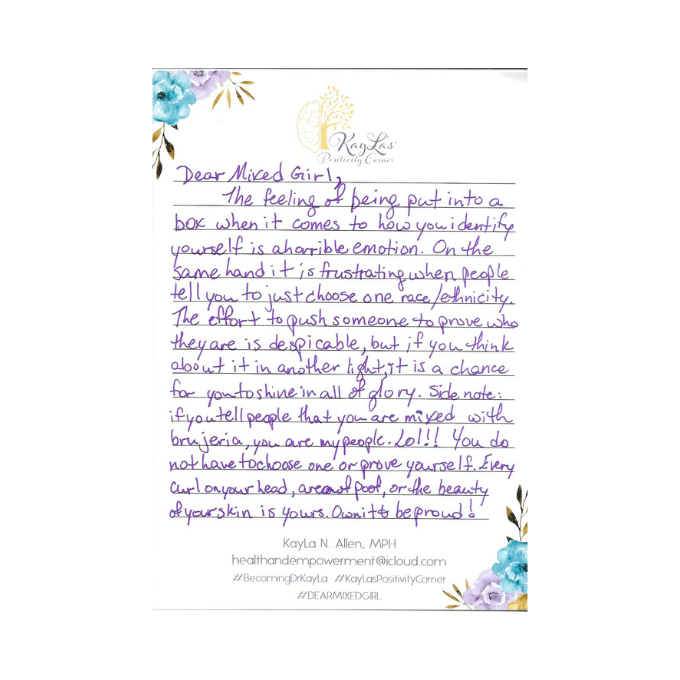 KayLa's
Positivity Corner
Dear Mixed Girl,
The feeling of being put into a
box when it comes to how you identify
yourself is a horrible emotion. On the
same hand it is frustrating when people
tell you to just choose one race/ethnicity.
The effort to push someone to prove who
they are is despicable, but if you think
about it in another light, it is a chance
for you to shine in all of glory. Side note:
if you tell people that you are mixed with
brujeria, you are my people. Lol!!! You do
not have to choose one or prove yourself. Every
curl on your head, arch of foot, or the beauty
of your skin is yours. Own it & be proud!
KayLa N. Allen, MPH
healthandempowerment@icloud.com
#BecomingDrKayLa #KayLasPositivityCorner
#DEARMIXEDGIRL